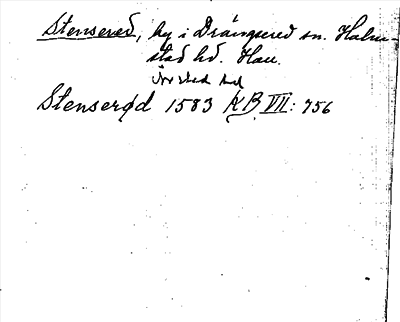 Stensered, by i Drängsered sn. Halm
stad hd. Hall.
Stenserød 1583 KB VII: 756